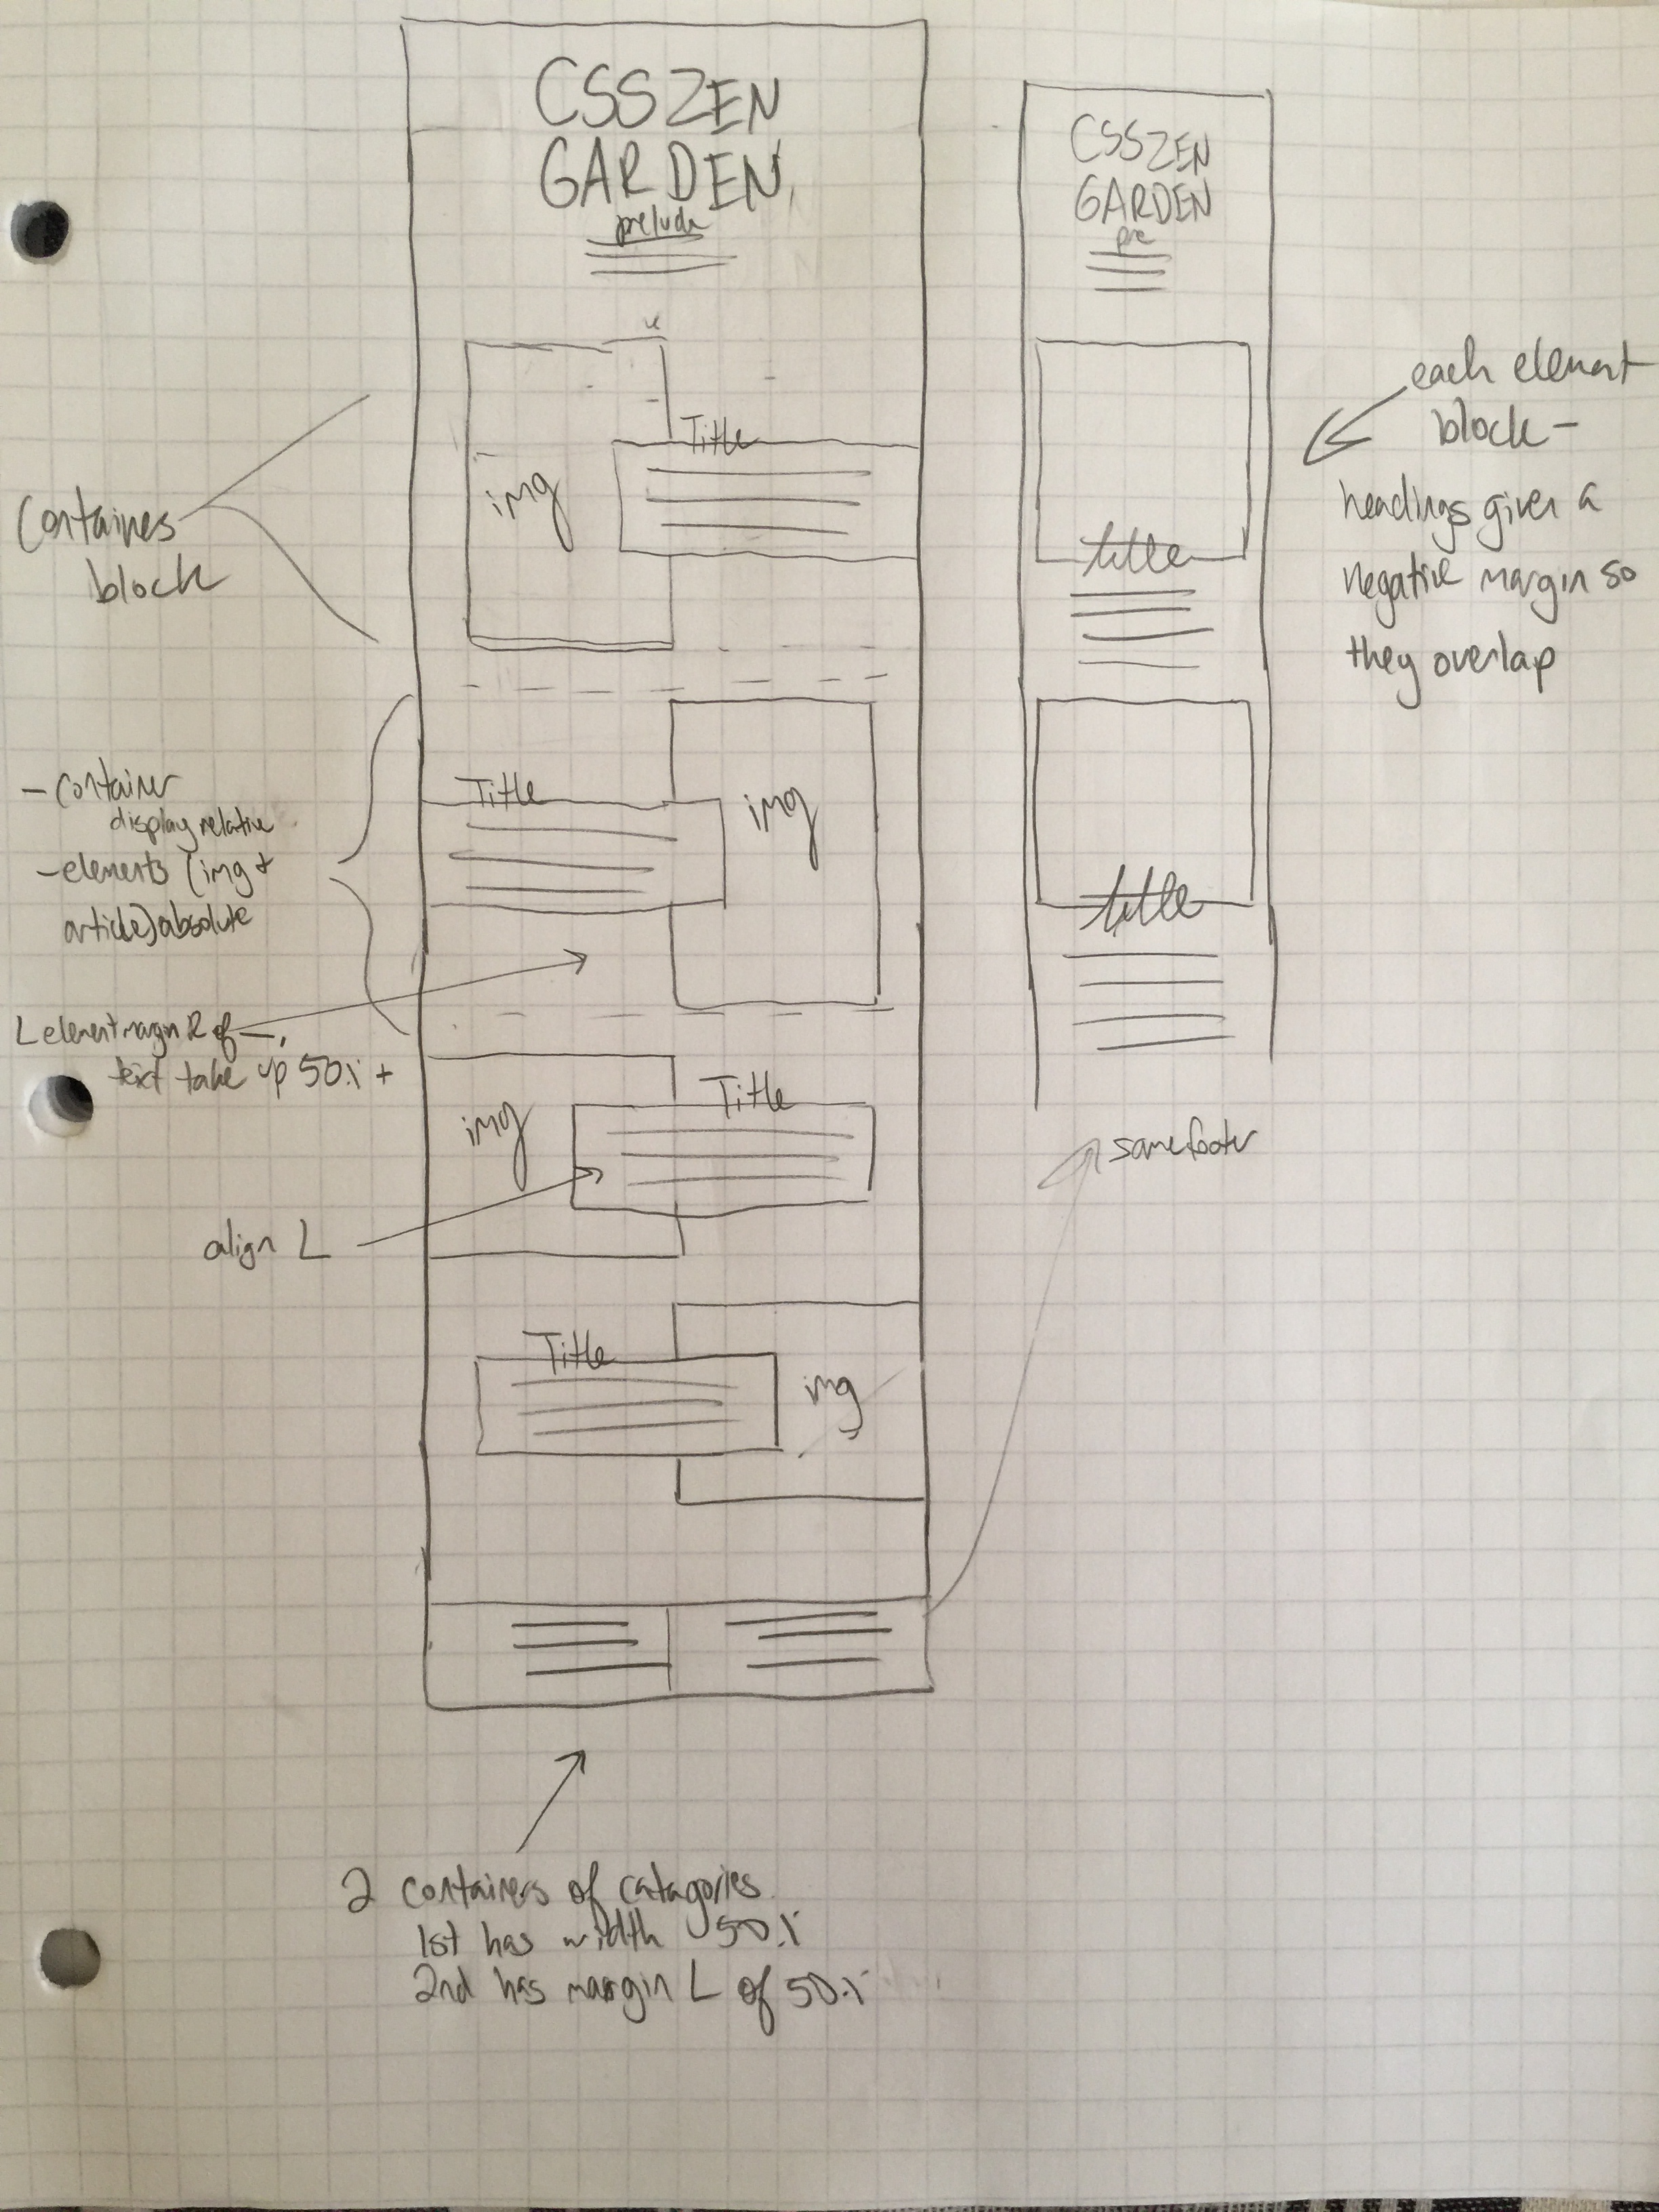 CSS ZEN
GARDEN
prelude
img
Title
Containers
block
Title
img
- Container
display relative
- elements (img +
article) absolute
L element margin R of —,
text take up 50% +
img
Title
align L
Title
img
2 containers of catagories
1st has width 50%
2nd has margin L of 50%
CSS ZEN
GARDEN
pre
title
title
each element
block -
headings given a
negative margin so
they overlap
same footer